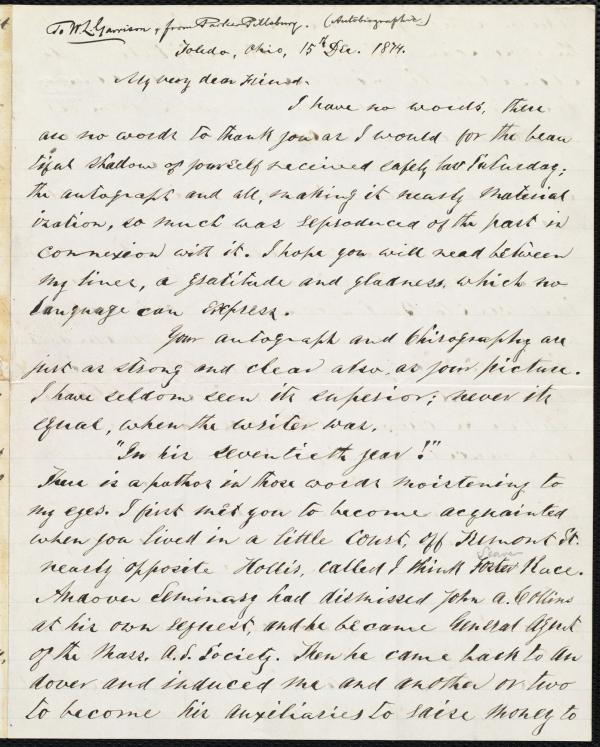 To W. L. Garrison, from Parker Pillsbury. (Autobiographic.)
Toledo, Ohio, 15th Dec. 1874.
My very dear Friend.
I have no words, there
are no words to thank you as I would for the beau
tiful shadow of yourself received safely last Saturday;
the autograph and all, making it nearly material
ization, so much was reproduced of the past in
connexion with it. I hope you will read between
my lines, a gratitude and gladness, which no
language can express.
Your autograph and Chirography are
just as strong and clear also, as your picture.
I have seldom seen its superior; never its
equal, when the writer was,
"In his seventieth year!"
There is a pathos in those words moistening to
my eyes. I first met you to become acquainted
when you lived in a little Court, off Tremont St.
Seaver
nearly opposite Hollis, called I think Foster Place.
Andover Seminary had dismissed John A. Collins
at his own request, and he became General Agent
of the Mass. A. S. Society. Then he came back to An
dover and induced me and another or two
to become his auxiliaries to raise money to